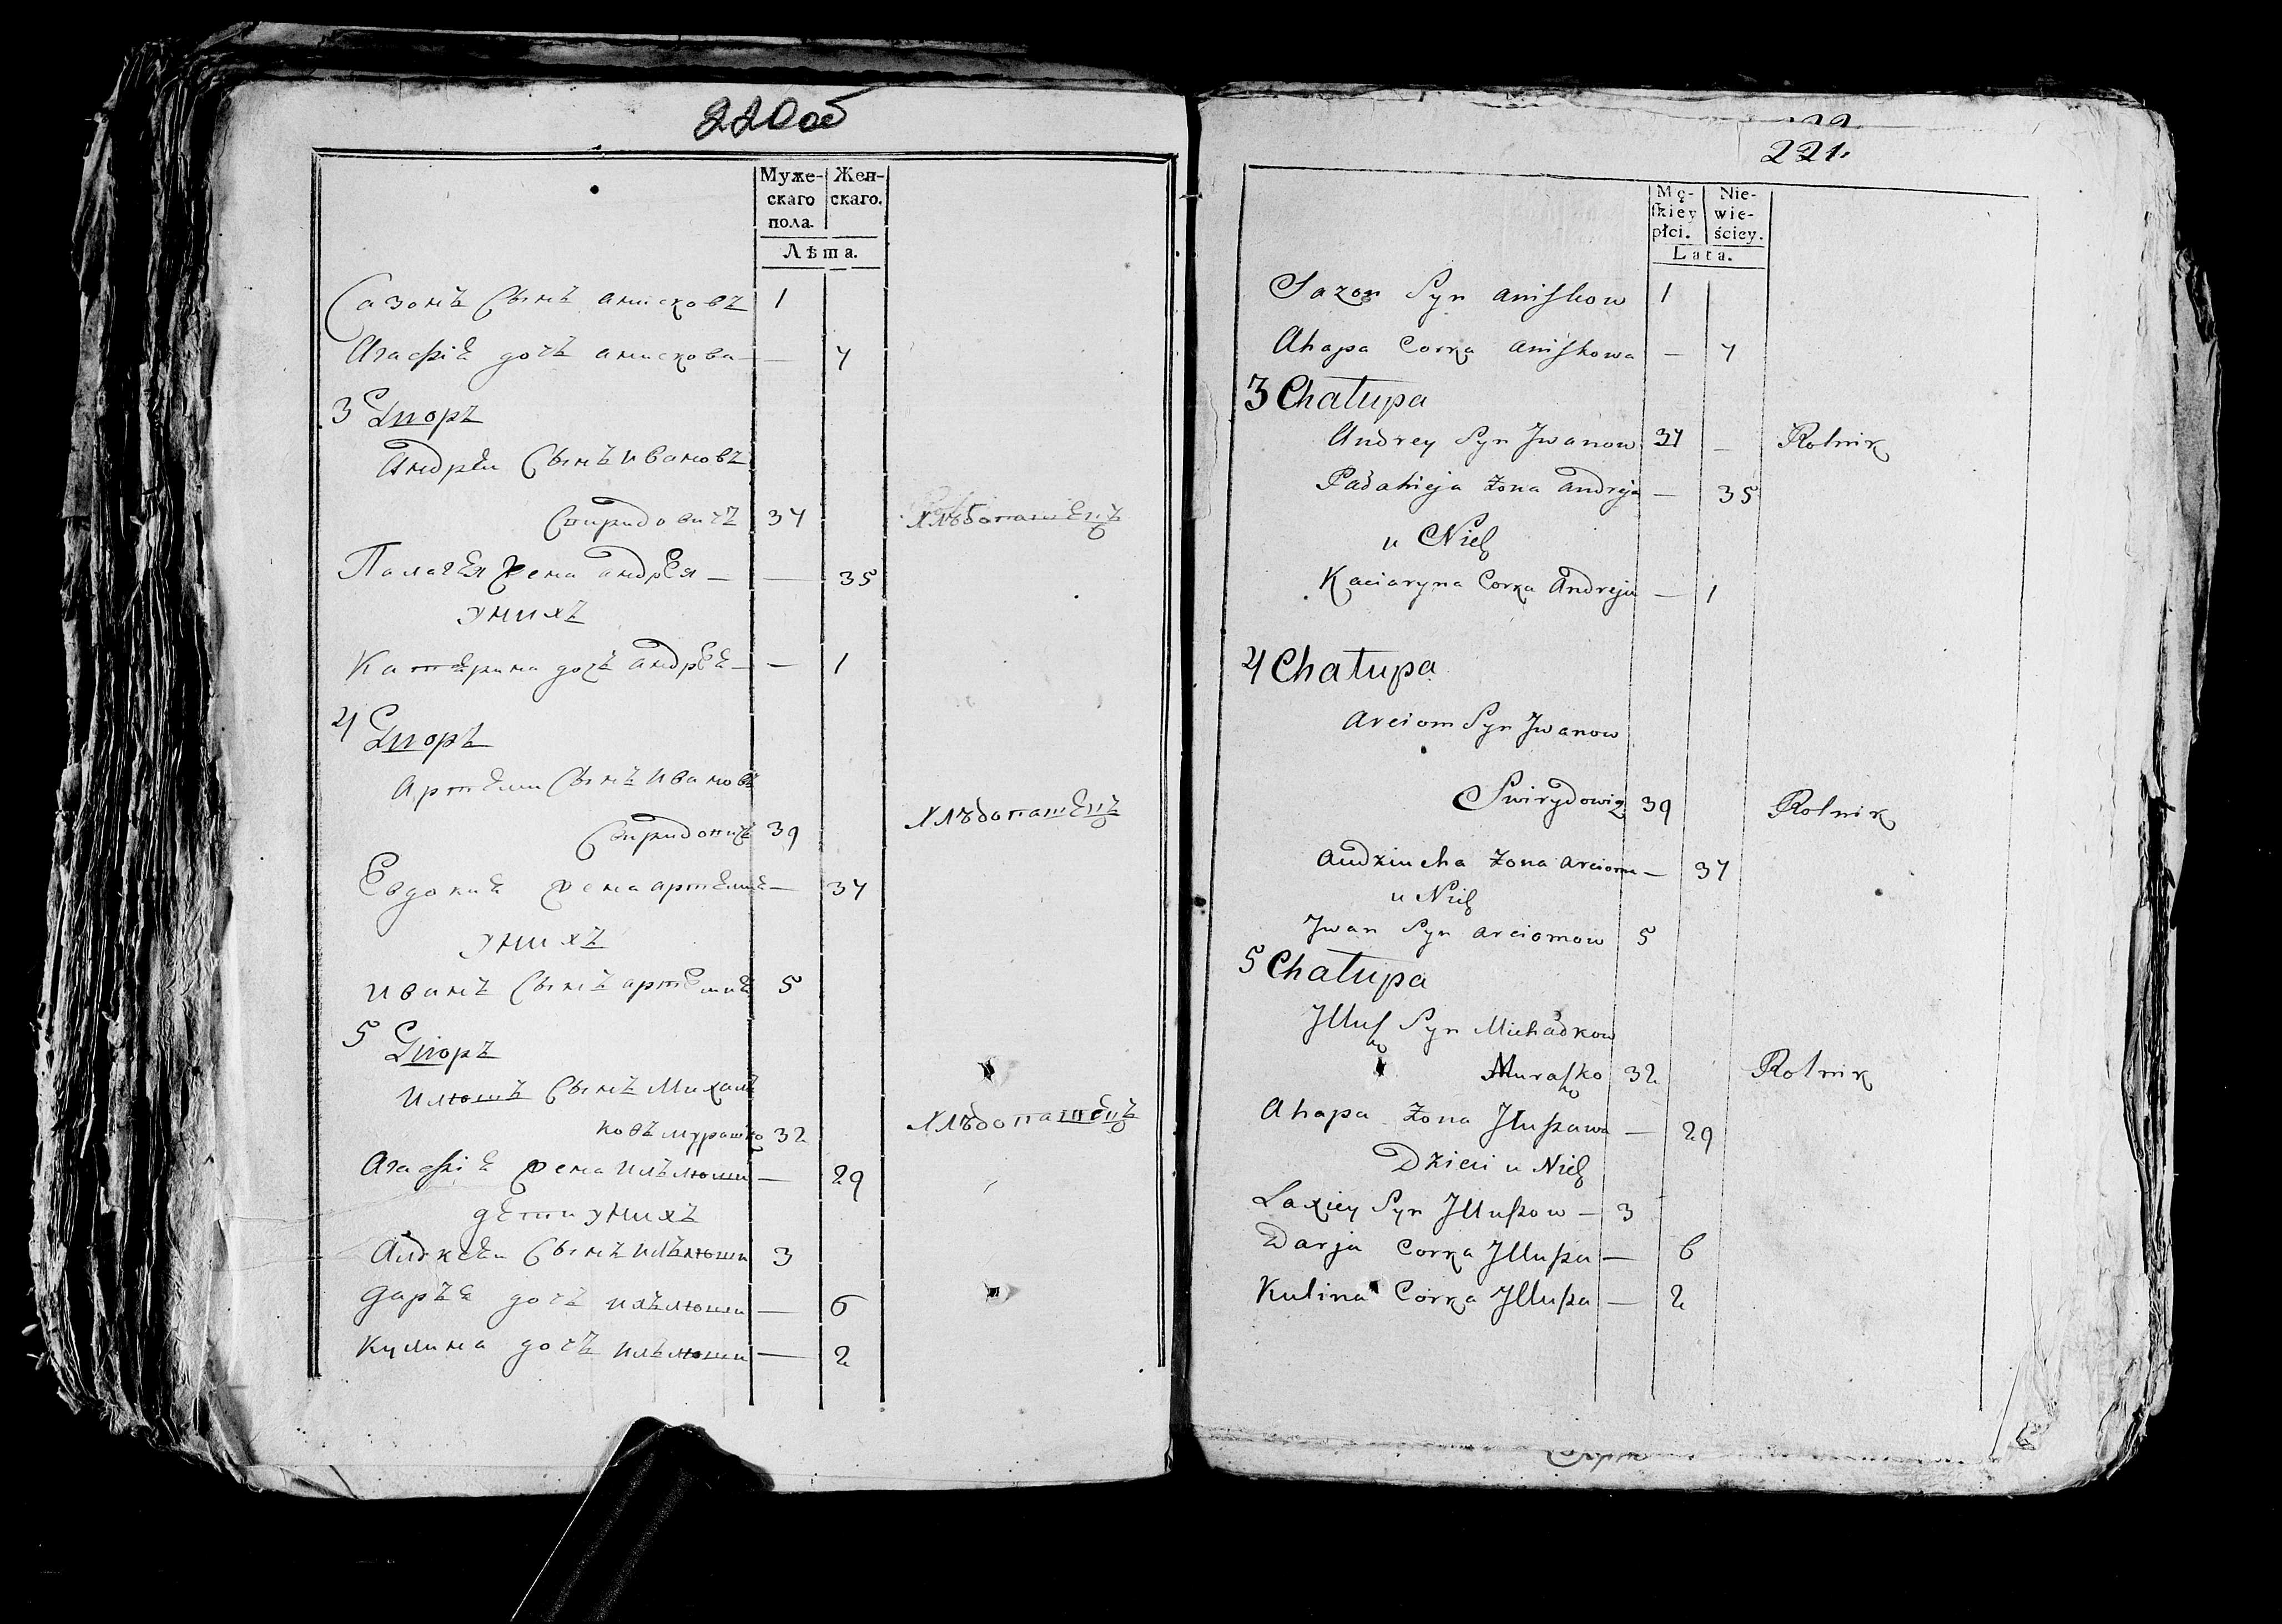 220об
Муже- Жен-
скаго скаго.
пола.
Лѣта.
Сазонъ Сынъ анисковъ 1
Агафіе дочь анискова — 4
3 Дворъ
Андрѣи Сынъ ивановъ
Свиридовичъ 34 Хлѣбопашецъ
Палагея жена андрея — — 35
у нихъ
Катерина дочь андрее — — 1
4 Дворъ
Артеми Сынъ ивановъ
Свиридовичъ 39 Хлѣбопашецъ
Евдокие жена артеми — 34
у нихъ
иванъ Сынъ артемие 5
5 Дворъ
Илюшъ Сынъ Михал
ковъ мурашко 32 Хлѣбопашецъ
Агафіе жена Ильюши — 29
дети у нихъ
Алексеи Сынъ ильюши 3
Дарье дочь ильюши — 6
Кулина дочь ильюши — 2
221.
Mę- Nie-
skiey wie-
płci. ściey.
Lata.
Sazon Syn aniskow 1
Ahapa Corka aniskowa — 4
3 Chałupa
Andrey Syn Jwanow 34 — Rolnik
Pałahieja Żona andreja — 35
u Nich
Kaciaryna Corka Andreja — 1
4 Chałupa
Arciom Syn Jwanow
Swirydowicz 39 Rolnik
Audziucha Żona arcioma — 34
u Nich
Jwan Syn arciomow 5
5 Chałupa
Jllusz Syn Michałkow
Muraszko 32 Rolnik
Ahapa Żona Jlluszawa — 29
Dzieci u Nich
Laxiey Syn Jlluszow — 3
Darja Corka Jllusza — 6
Kulina Corka Jllusza — 2